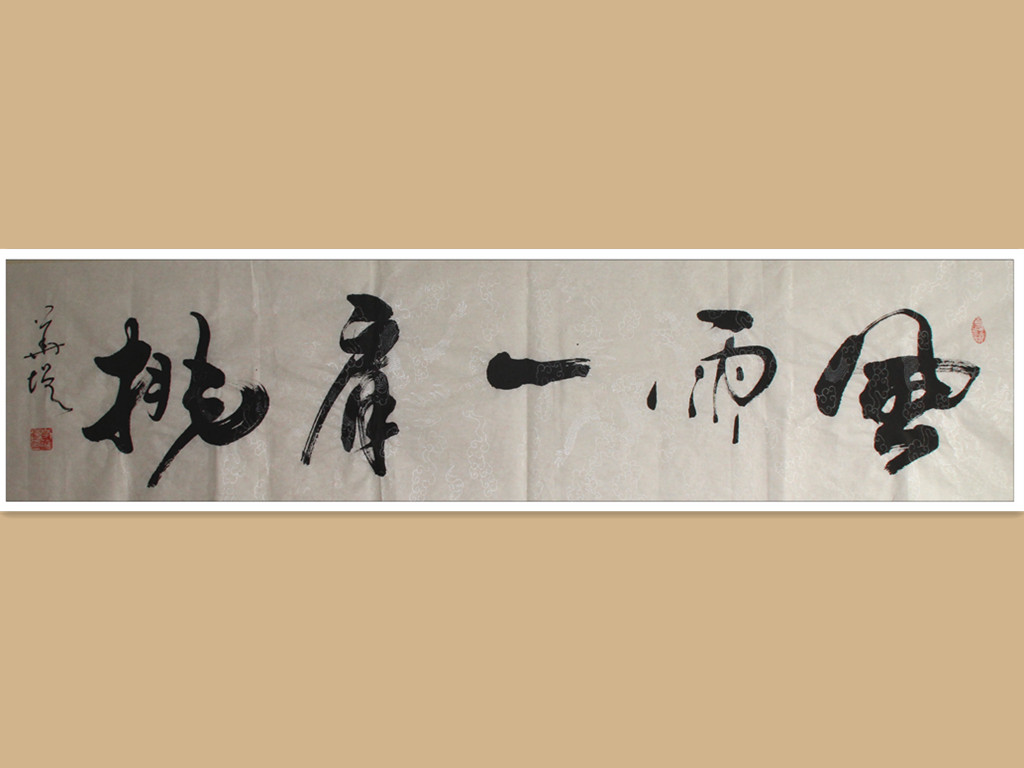 風雨一肩挑